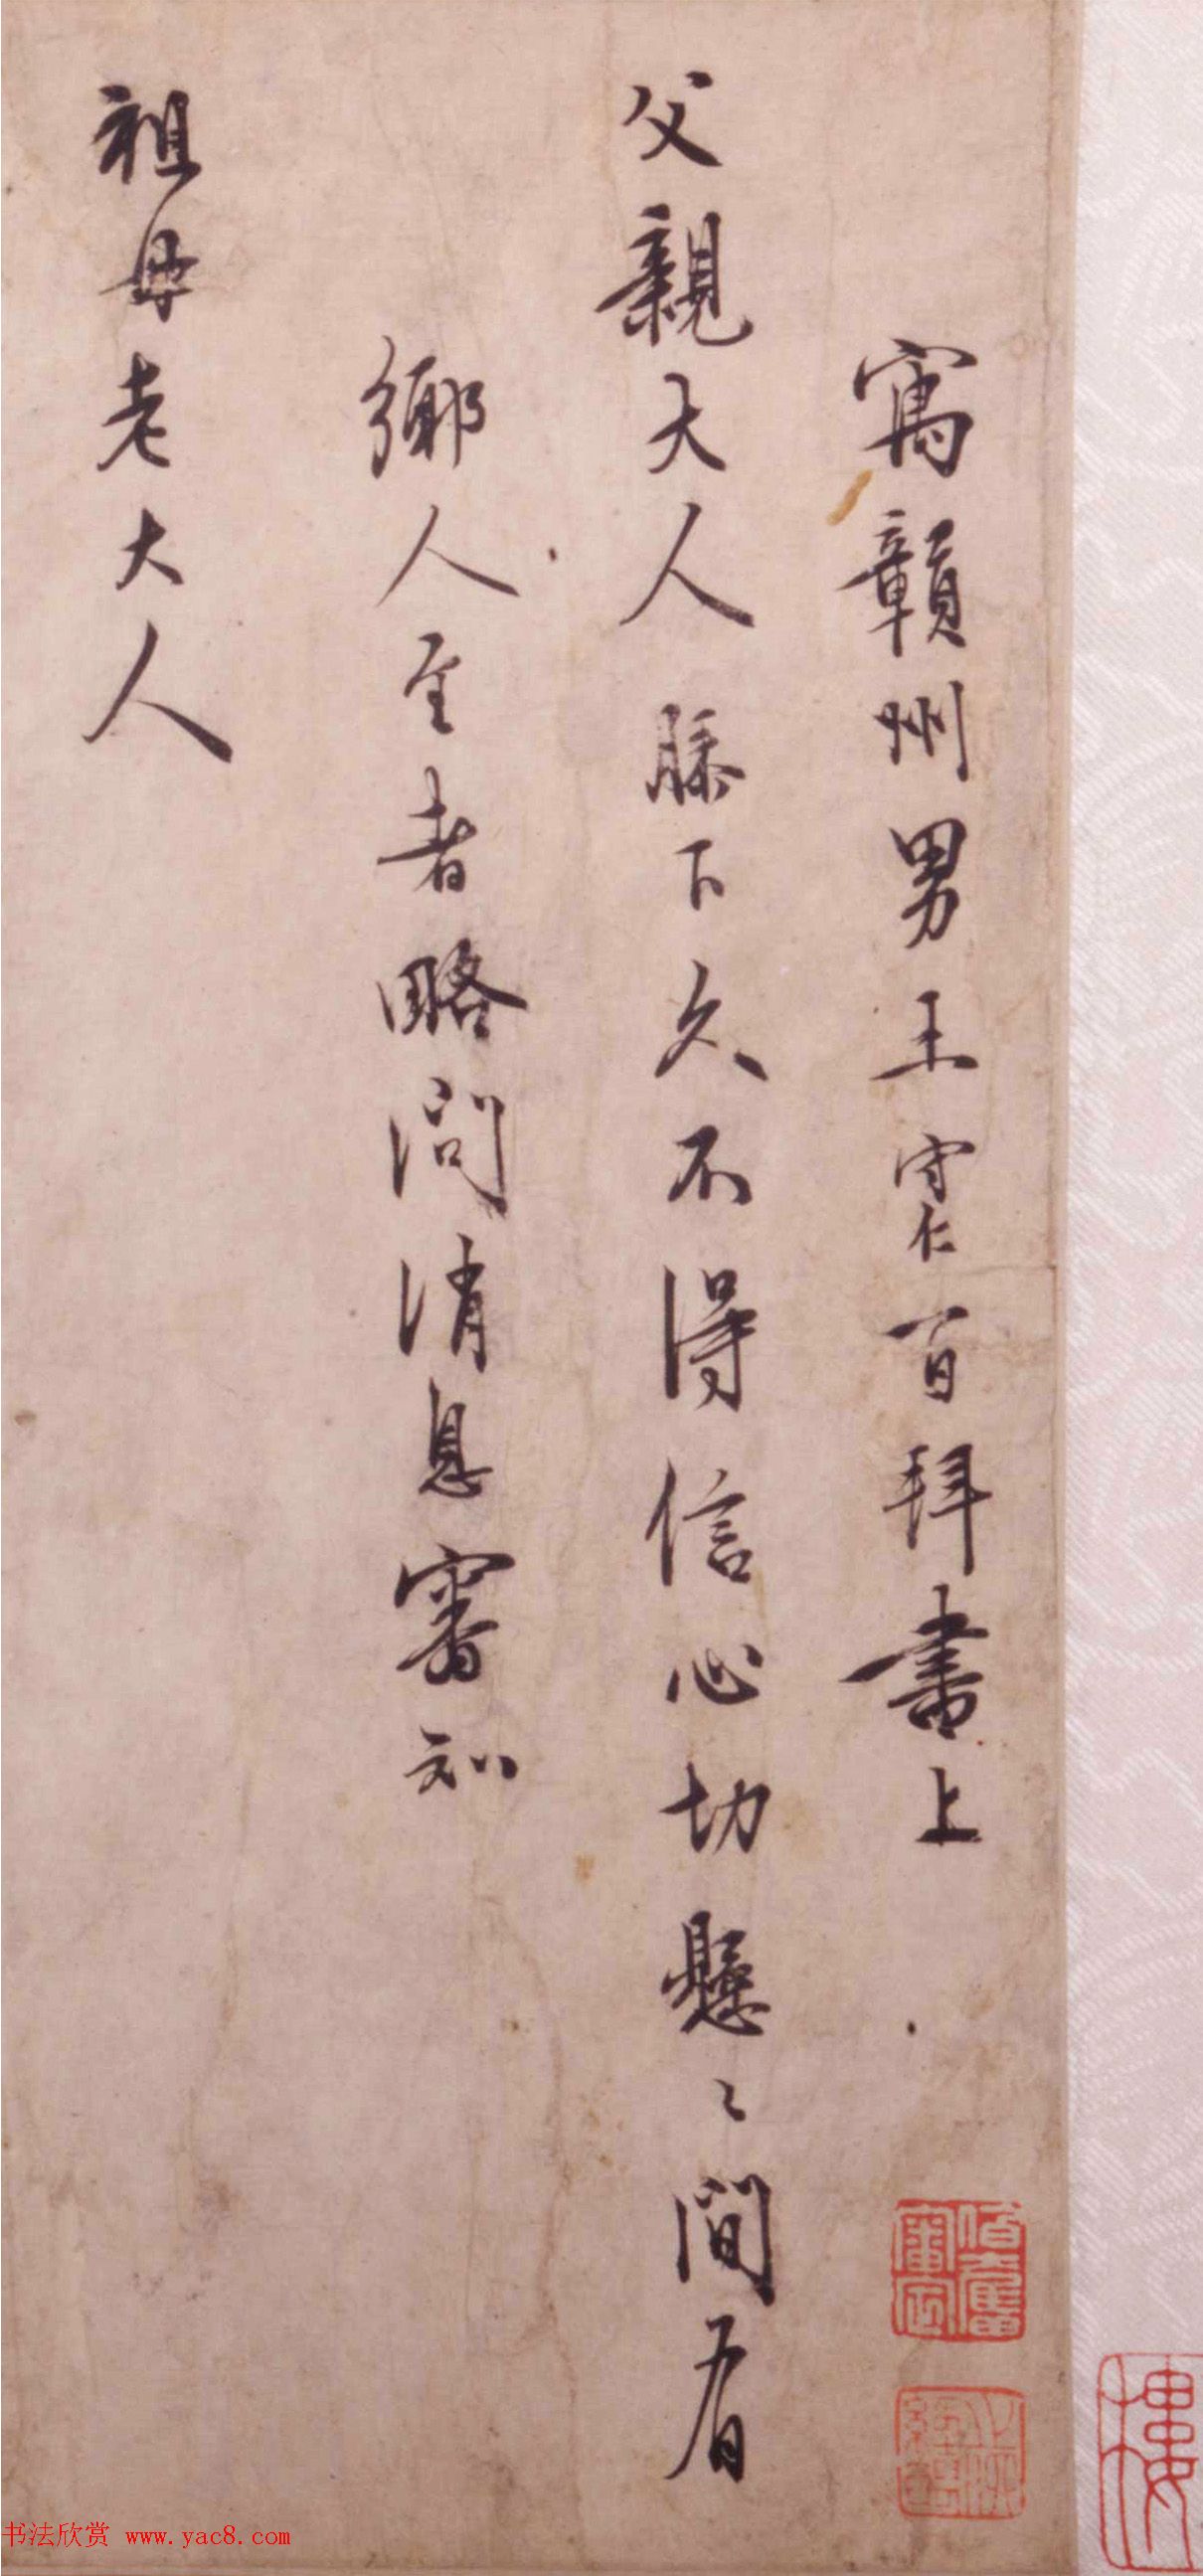 寓贛州男王守仁百拜書上
父親大人膝下久不得信心切懸〻間有
鄉人至者略問消息審知
祖母老大人
書法欣赏 www.yac8.com